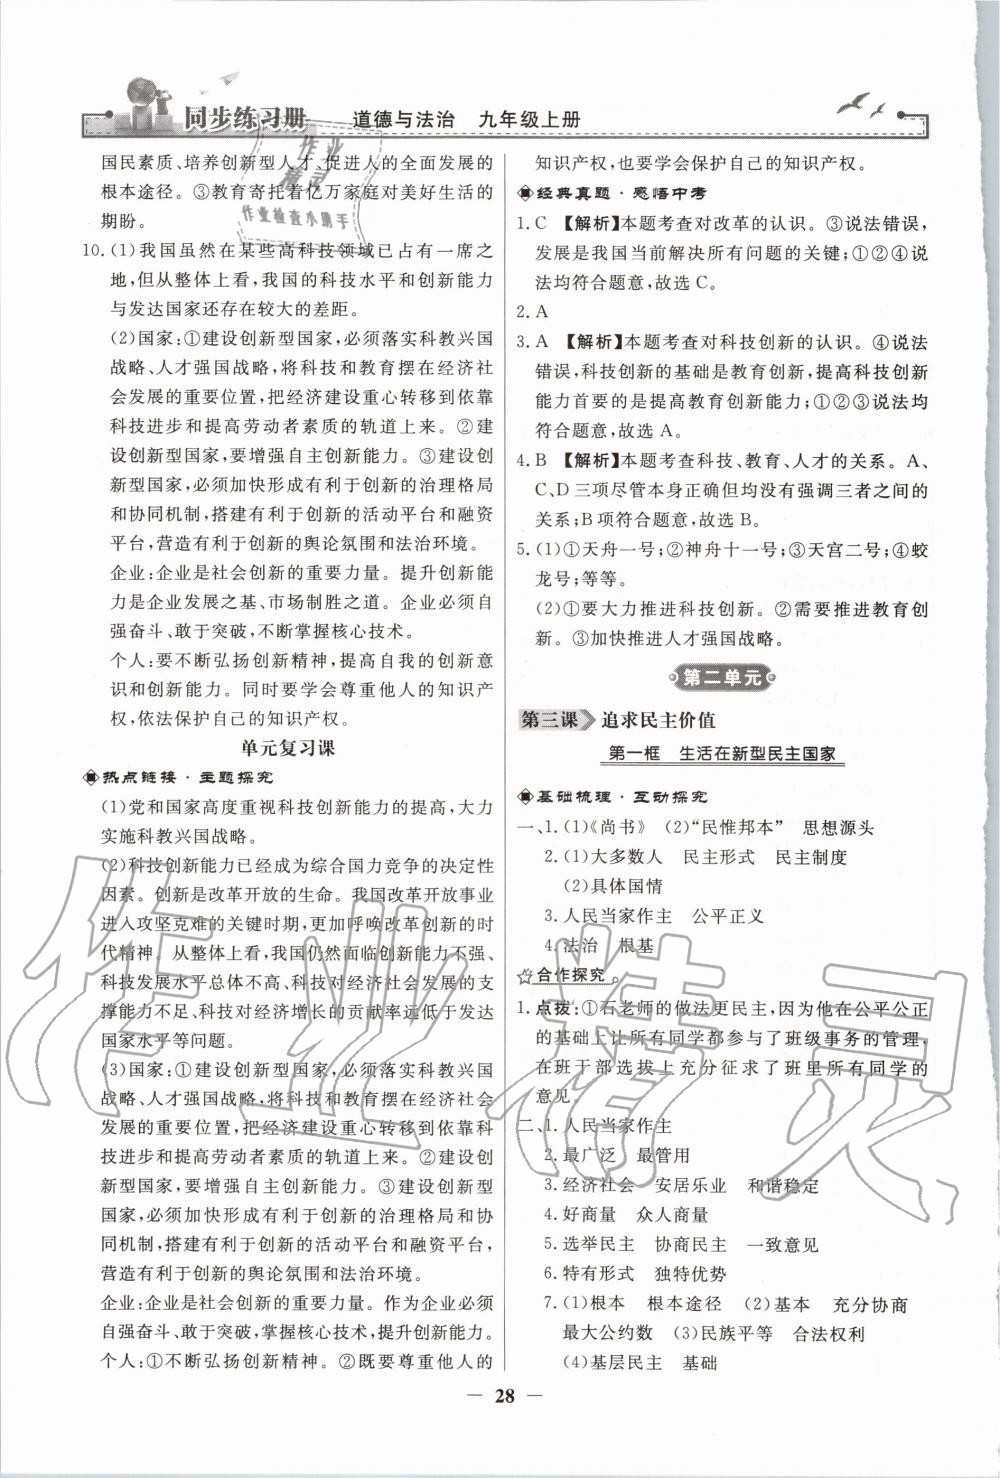 同步练习册 道德与法治 九年级上册
国民素质、培养创新型人才、促进人的全面发展的
根本途径。③教育寄托着亿万家庭对美好生活的
期盼。
10.(1)我国虽然在某些高科技领域已占有一席之
地,但从整体上看,我国的科技水平和创新能力
与发达国家还存在较大的差距。
(2)国家:①建设创新型国家,必须落实科教兴国
战略、人才强国战略,将科技和教育摆在经济社
会发展的重要位置,把经济建设重心转移到依靠
科技进步和提高劳动者素质的轨道上来。②建
设创新型国家,要增强自主创新能力。③建设创
新型国家,必须加快形成有利于创新的治理格局
和协同机制,搭建有利于创新的活动平台和融资
平台,营造有利于创新的舆论氛围和法治环境。
企业:企业是社会创新的重要力量。提升创新能
力是企业发展之基、市场制胜之道。企业必须自
强奋斗、敢于突破,不断掌握核心技术。
个人:要不断弘扬创新精神,提高自我的创新意
识和创新能力。同时要学会尊重他人的知识产
权,依法保护自己的知识产权。
单元复习课
热点链接·主题探究
(1)党和国家高度重视科技创新能力的提高,大力
实施科教兴国战略。
(2)科技创新能力已经成为综合国力竞争的决定性
因素。创新是改革开放的生命。我国改革开放事业
进入攻坚克难的关键时期,更加呼唤改革创新的时
代精神。从整体上看,我国仍然面临创新能力不强、
科技发展水平总体不高、科技对经济社会发展的支
撑能力不足、科技对经济增长的贡献率远低于发达
国家水平等问题。
(3)国家:①建设创新型国家,必须落实科教兴国
战略、人才强国战略,将科技和教育摆在经济社会
发展的重要位置,把经济建设重心转移到依靠科技
进步和提高劳动者素质的轨道上来。②建设创新
型国家,要增强自主创新能力。③建设创新型
国家,必须加快形成有利于创新的治理格局和协
同机制,搭建有利于创新的活动平台和融资平台,
营造有利于创新的舆论氛围和法治环境。
企业:企业是社会创新的重要力量。作为企业必须
自强奋斗、敢于突破,掌握核心技术,提升创新能力。
个人:①不断弘扬创新精神。②既要尊重他人的
知识产权,也要学会保护自己的知识产权。
经典真题·感悟中考
1.C 【解析】本题考查对改革的认识。③说法错误,
发展是我国当前解决所有问题的关键;①②④说
法均符合题意,故选C。
2.A
3.A 【解析】本题考查对科技创新的认识。④说法
错误,科技创新的基础是教育创新,提高科技创新
能力首要的是提高教育创新能力;①②③说法均
符合题意,故选A。
4.B 【解析】本题考查科技、教育、人才的关系。A、
C、D三项尽管本身正确但均没有强调三者之间的
关系;B项符合题意,故选B。
5.(1)①天舟一号;②神舟十一号;③天宫二号;④蛟
龙号;等等。
(2)①要大力推进科技创新。②需要推进教育创
新。③加快推进人才强国战略。
第二单元
第三课 追求民主价值
第一框 生活在新型民主国家
基础梳理·互动探究
一、1.(1)《尚书》 (2)“民惟邦本” 思想源头
2.(1)大多数人 民主形式 民主制度
(2)具体国情
3.人民当家作主 公平正义
4.法治 根基
合作探究
1.点拨:①石老师的做法更民主,因为他在公平公正
的基础上让所有同学都参与了班级事务的管理,
在班干部选拔上充分征求了班里所有同学的
意见。
二、1.人民当家作主
2.最广泛 最管用
3.经济社会 安居乐业 和谐稳定
4.好商量 众人商量
5.选举民主 协商民主 一致意见
6.特有形式 独特优势
7.(1)根本 根本途径 (2)基本 充分协商
最大公约数 (3)民族平等 合法权利
(4)基层民主 基础
— 28 —
作业精灵
作业检查小助手
作业精灵